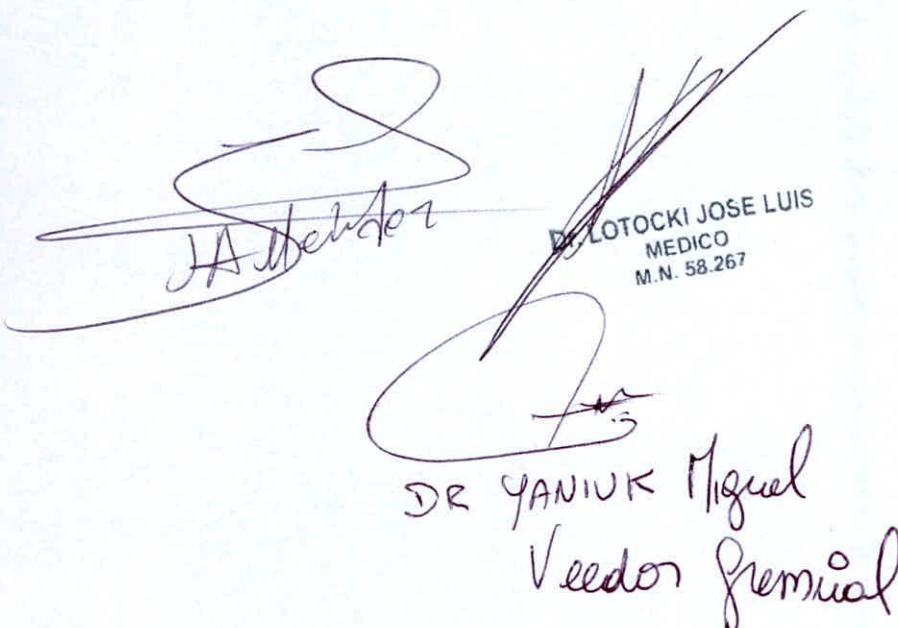 DR. LOTOCKI JOSE LUIS
MEDICO
M.N. 58.267
DR YANIUK Miguel
Veedor Gremial